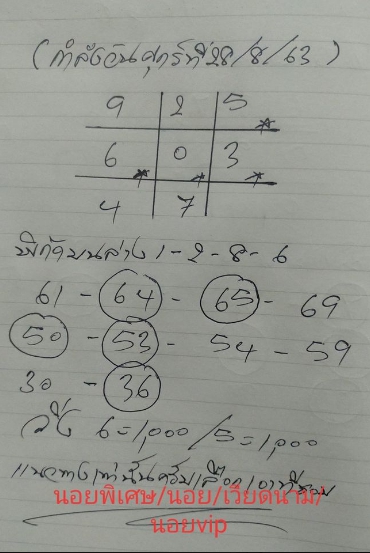 (กำลังวันศุกร์ที่28/8/63)
9 2 5
6 0 3
4 7
พิกัดบนล่าง 1-2-8-6
61 - 64 - 65 - 69
50 - 53 - 54 - 59
30 - 36
วิ่ง 6=1,000/5=1,000
แนวทางเท่านั้นครับเลือกเอาที่ชอบ
นอยพิเศษ/นอย/เวียดนาม/
นอยvip